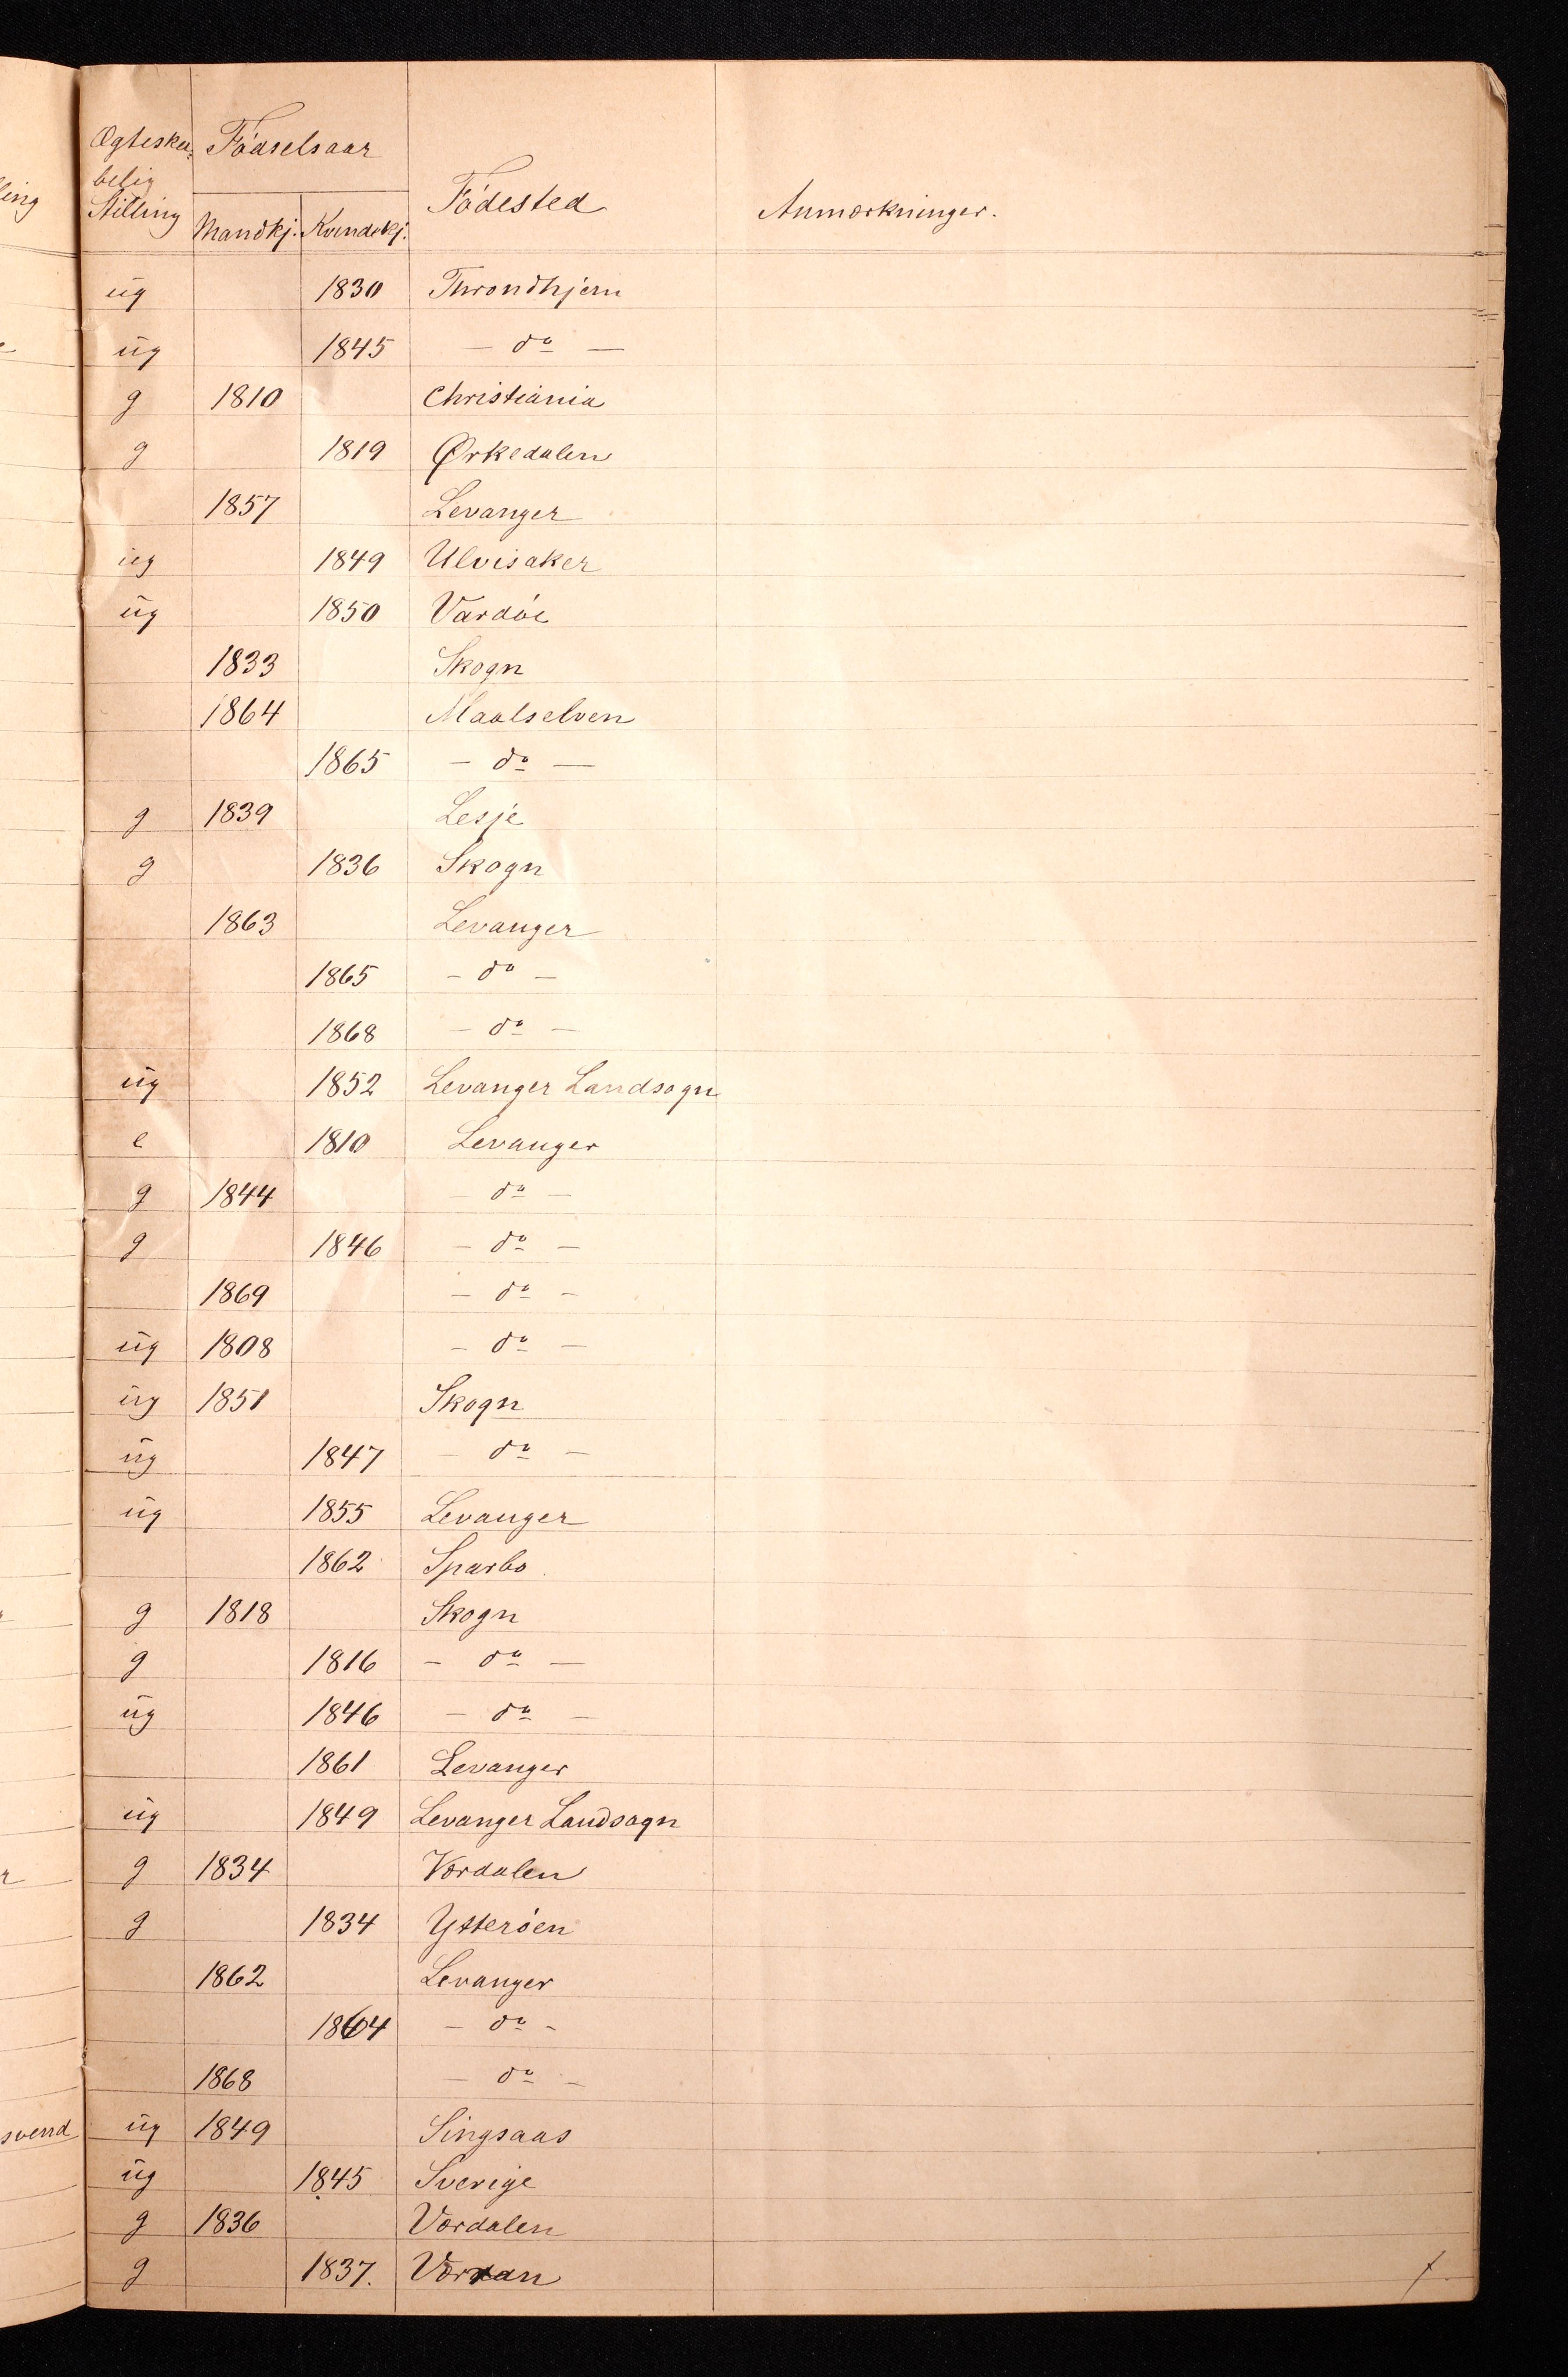 Ægteska= Födselsaar
belig
Stilling Mandkj. Kvindekj. Födested Anmærkninger.
ug 1830 Throndhjem
ug 1845 — do —
g 1810 Christiania
g 1819 Ørkedalen
1857 Levanger
ug 1849 Ulvisaker
ug 1850 Vardöe
1833 Skogn
1864 Maalselven
1865 — do —
g 1839 Lesje
g 1836 Skogn
1863 Levanger
1865 — do —
1868 — do —
ug 1852 Levanger Landsogn
e 1810 Levanger
g 1844 — do —
g 1846 — do —
1869 — do —
ug 1808 — do —
ug 1851 Skogn
ug 1847 — do —
ug 1855 Levanger
1862 Sparbo
g 1818 Skogn
g 1816 — do —
ug 1846 — do —
1861 Levanger
ug 1849 Levanger Landsogn
g 1834 Værdalen
g 1834 Ytteröen
1862 Levanger
1864 — do —
1868 — do —
svend ug 1849 Singsaas
ug 1845 Sverige
g 1836 Værdalen
g 1837.